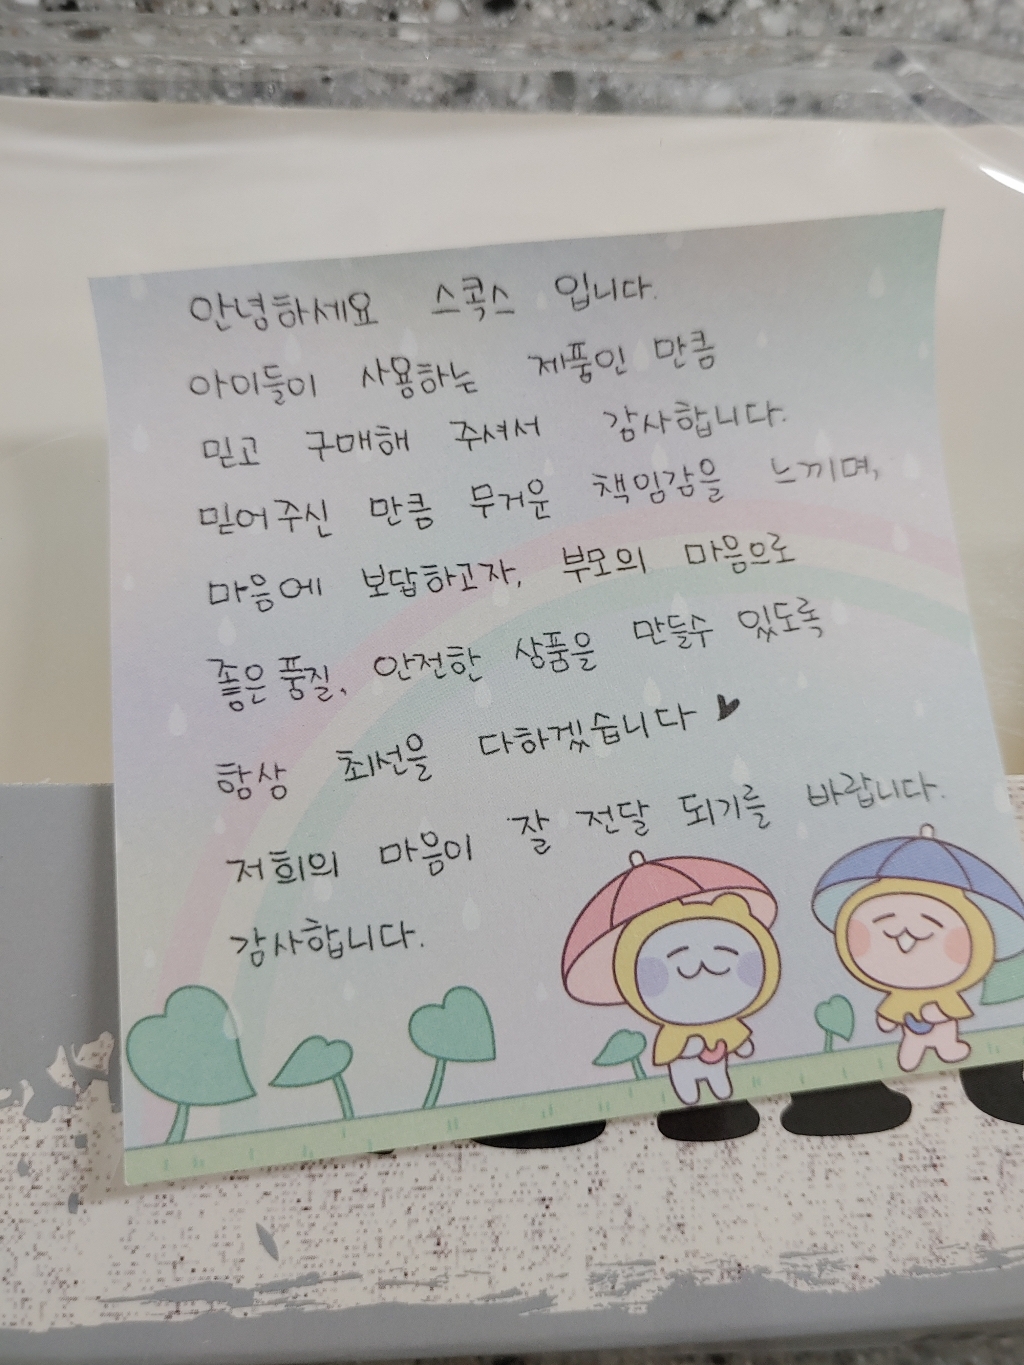 안녕하세요 스콕스 입니다.
아이들이 사용하는 제품인 만큼
믿고 구매해 주셔서 감사합니다.
믿어주신 만큼 무거운 책임감을 느끼며,
마음에 보답하고자, 부모의 마음으로
좋은 품질, 안전한 상품을 만들수 있도록
항상 최선을 다하겠습니다 ♥
저희의 마음이 잘 전달 되기를 바랍니다.
감사합니다.